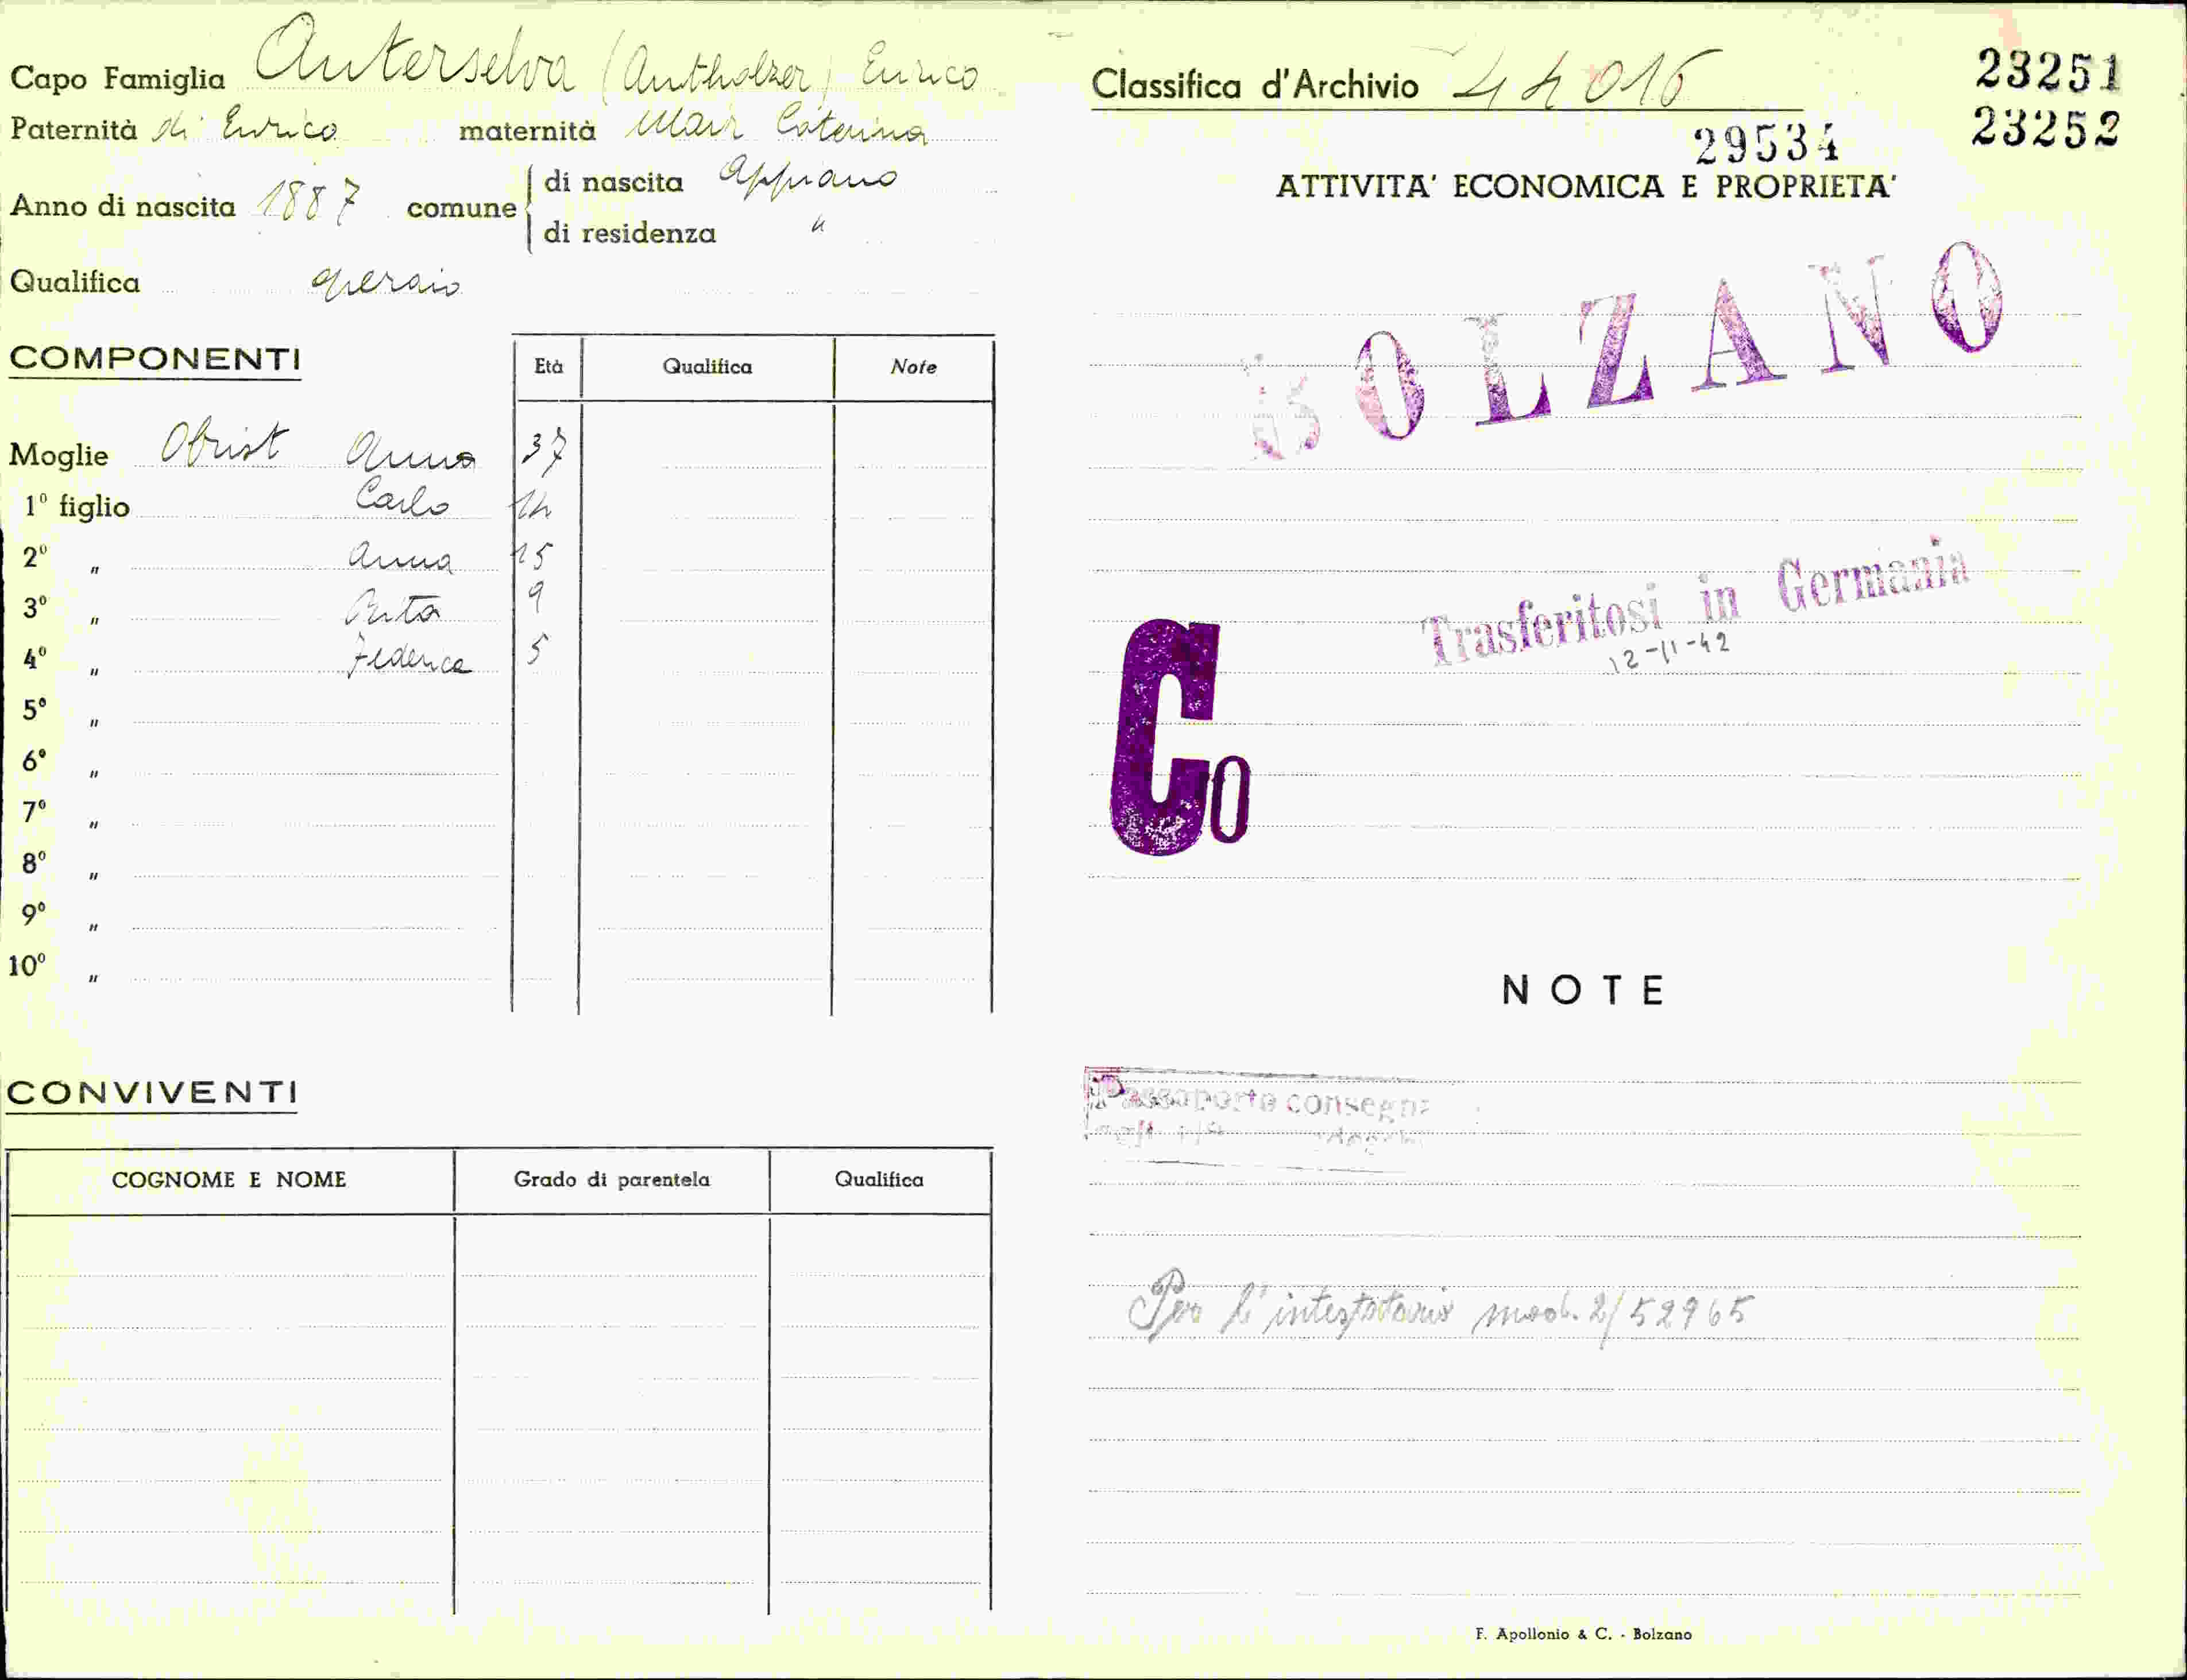 Capo Famiglia Anterselva (Antholzer) Enrico
Paternità di Enrico maternità Mair Caterina
Anno di nascita 1887 comune di nascita Appiano
di residenza "
Qualifica operaio
COMPONENTI Età Qualifica Note
Moglie Obrist Anna 37
1º figlio Carlo 14
2º " Anna 15
3º " Rita 9
4º " Federica 5
5º "
6º "
7º "
8º "
9º "
10º "
CONVIVENTI
COGNOME E NOME Grado di parentela Qualifica
Classifica d'Archivio 44016
23251
23252
29534
ATTIVITA' ECONOMICA E PROPRIETA'
BOLZANO
Trasferitosi in Germania
12-11-42
Co
NOTE
Passaporto
Per l'intestatario mod. 2/52965
F. Apollonio & C. - Bolzano